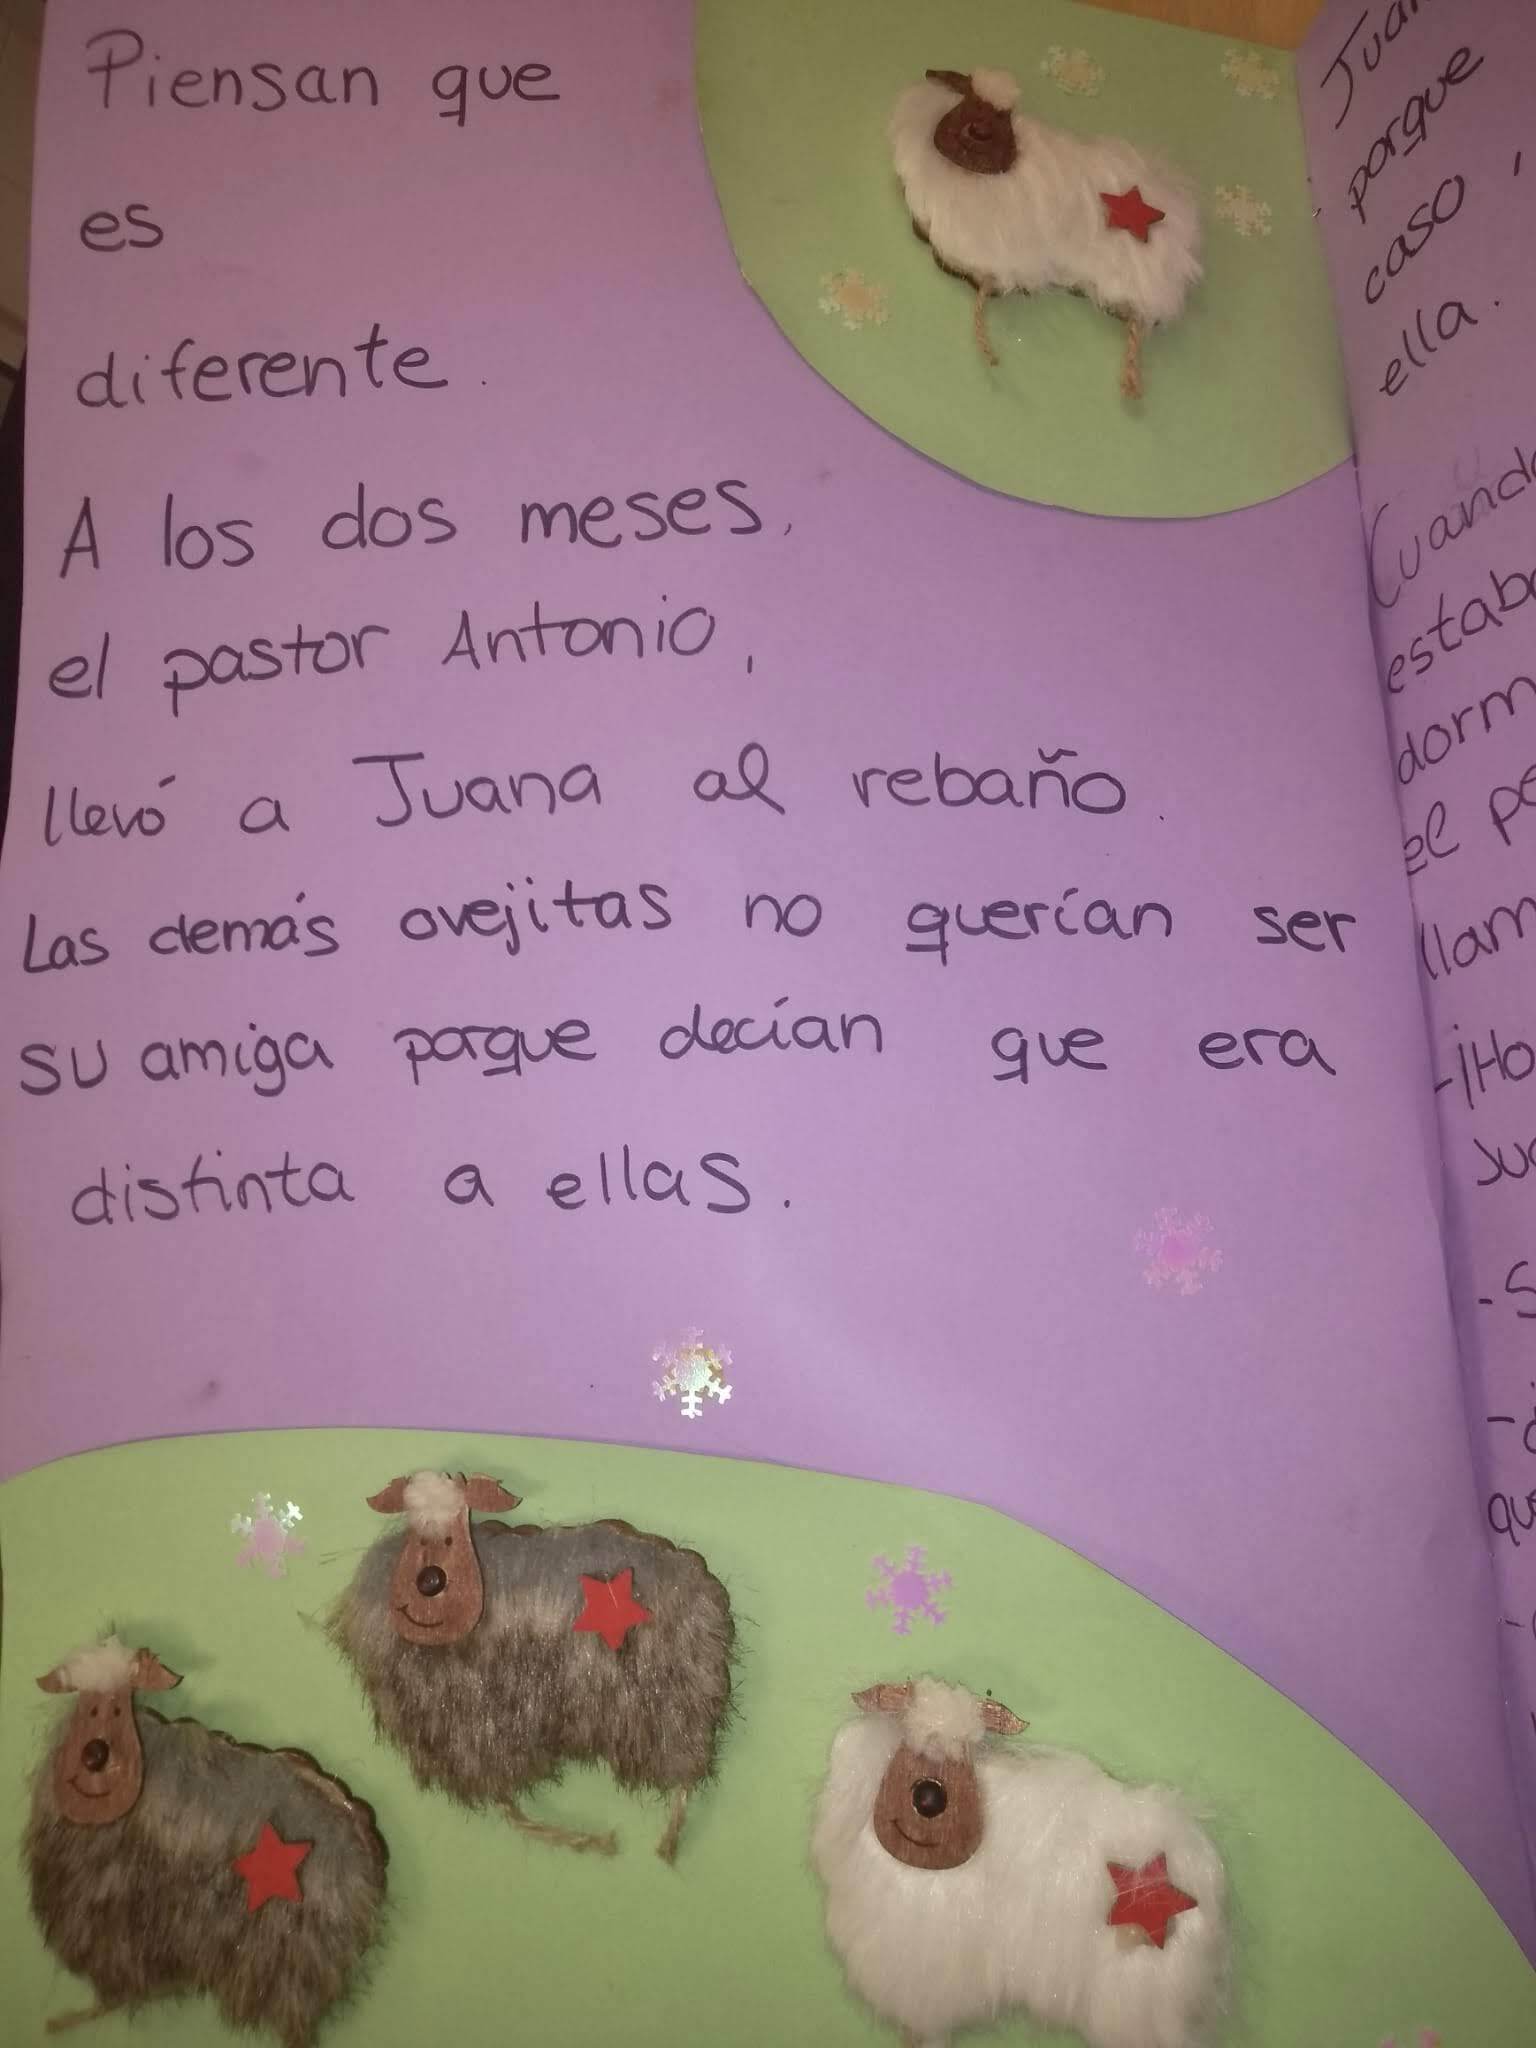 Piensan que
es
diferente.
A los dos meses,
el pastor Antonio,
llevó a Juana al rebaño.
Las demás ovejitas no querían ser
su amiga porque decían que era
distinta a ellas.
porque
caso,
ella.